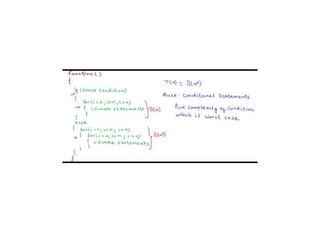 function()
{
if(some condition)
{
for(i=0;i<n;i++)
=simple statements
} O(n)
else
for(i=0;i<n;i++)
{ for(i=0;i<n;i++)
{
=simple statements
}
} O(n²)
}
T(n) = O(n²)
Rule: Conditional Statements
complexity of condition
which is worst case